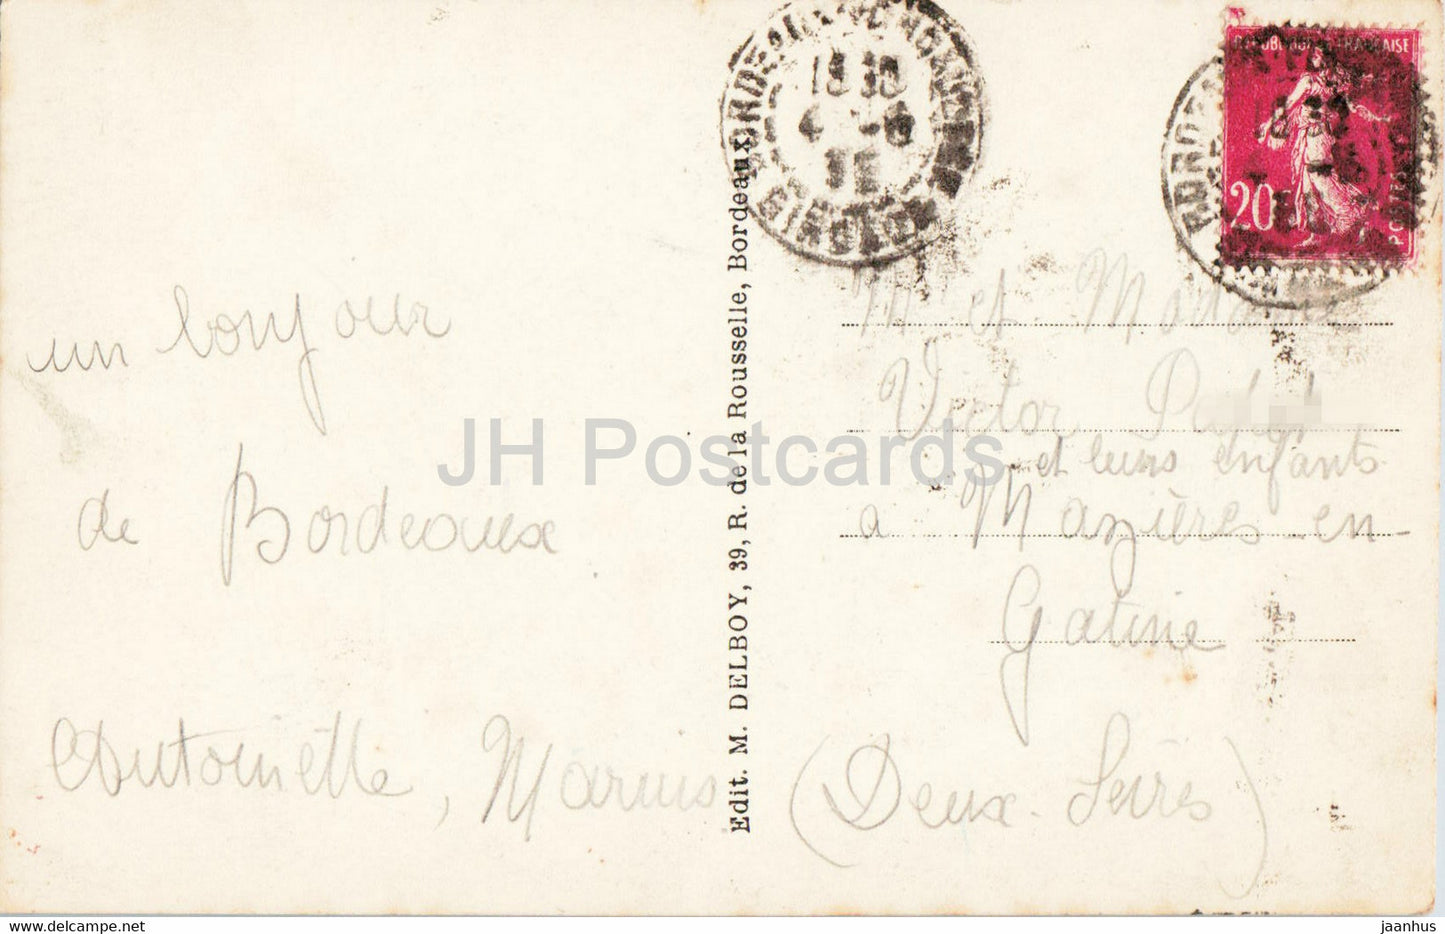 un bonjour
de Bordeaux
Antoinette, Marius
Edit. M. DELBOY, 39, R. de la Rousselle, Bordeaux
18 30
GIRONDE
REPUBLIQUE FRANÇAISE
20
POSTES
M et Madame
Victor
et leurs enfants
a Mazières en-
Gatine
(Deux-Sèvres)
JH Postcards
www.delcampe.net
jaanhus